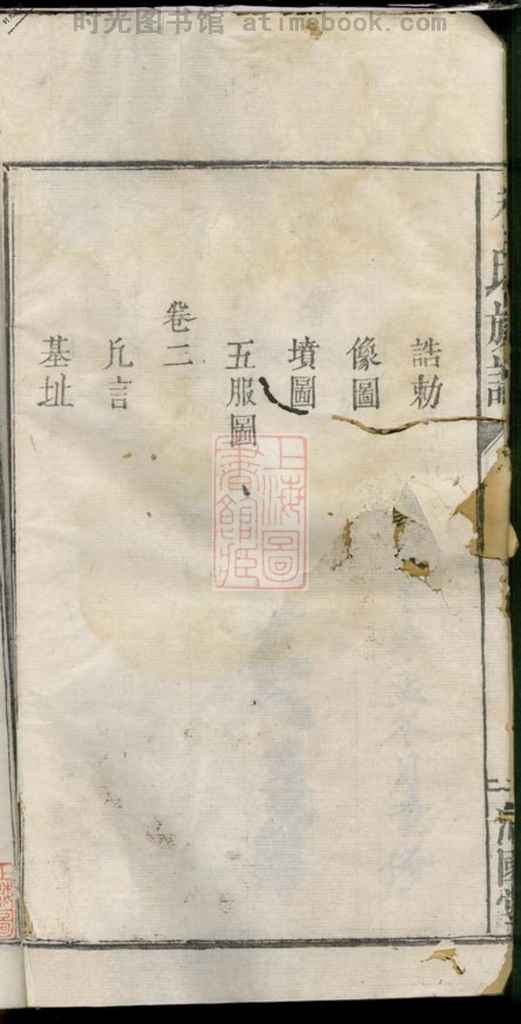 时光图书馆 atimebook.com
誥勅
像圖
墳圖
五服圖
卷二
凡言
基址
上海圖
書館藏
氏族譜
二